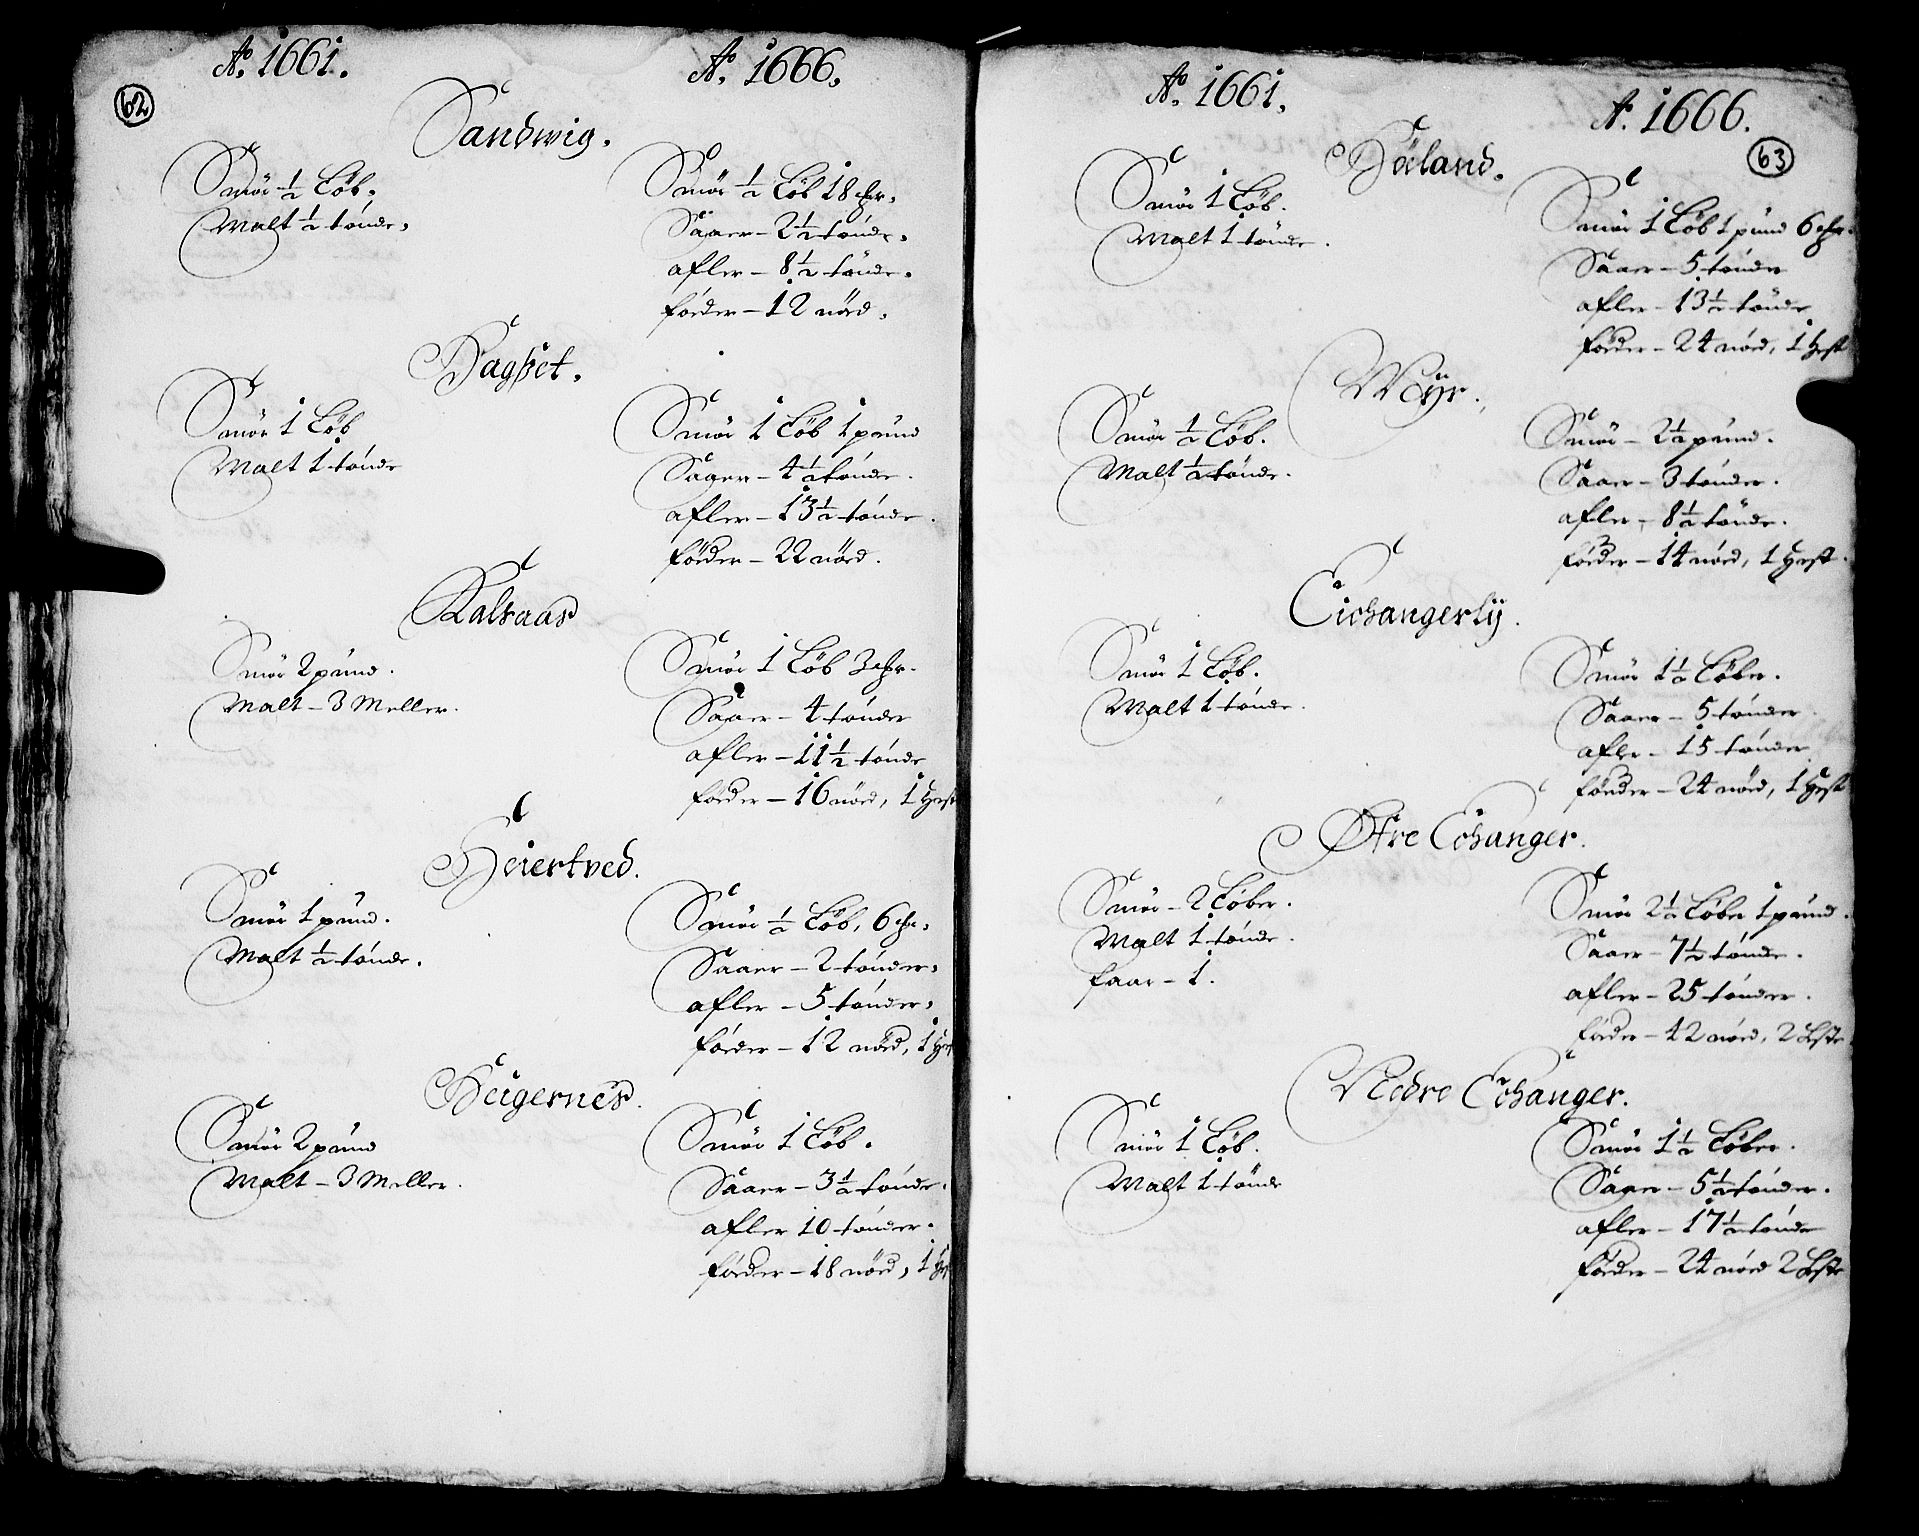 62
Aº. 1661. Aº. 1666.
Sandwig.
Smör ½ Löb.
Malt ½ tönde.
Smör ½ Löb 18 Mr.
Saaer – 2½ tönde.
afler – 8½ tönde.
föeder – 12 nöed.
Dagßet.
Smör 1 Löb
Malt 1 tönde
Smör 1 Löb 1 pund
Saaer – 4½ tönde.
afler – 13½ tönde.
föeder – 22 nöed.
Kalsaas
Smör 2 pund.
Malt – 3 Meller.
Smör 1 Löb 3 Mr.
Saaer – 4 tönder
afler – 11½ tönde
föeder – 16 nöed, 1 Hest
Heiertved.
Smör 1 pund.
Malt ½ tönde.
Smör ½ Löb, 6 Mr.
Saaer – 2 tönder.
afler – 5 tönder.
föeder – 12 nöed, 1
Heigernes.
Smör 2 pund
Malt – 3 Meller.
Smör 1 Löb.
Saaer – 3½ tönde.
afler 10 tönder.
föeder – 18 nöed, 1
63
Aº. 1661. A. 1666.
Höeland.
Smör 1 Löb.
Malt 1 tönde.
Smör 1 Löb 1 pund 6 Mr.
Saaer – 5 tönder
afler – 13½ tönde
föeder – 24 nöed, 1 Hest
Möÿr.
Smör ½ Löb.
Malt ½ tönde.
Smör – 2½ pund.
Saaer – 3 tönder.
afler – 8½ tönde.
föeder – 14 nöed, 1 Hest.
Eichangerlÿ.
Smör 1 Löb.
Malt 1 tönde.
Smör 1½ Löber.
Saaer – 5 tönder.
afler – 15 tönder
föeder – 24 nöed, 1 Hest
Øfre Echanger.
Smör – 2 Löber.
Malt 1 tönde.
faar – 1.
Smör 2½ Löber 1 pund.
Saaer – 7½ tönde.
afler – 25 tönder.
föeder – 42 nöed, 2 Heste
Nedre Echanger.
Smör 1 Löb.
Malt 1 tönde
Smör 1½ Löber.
Saaer – 5½ tönder.
afler – 17½ tönde
föeder – 24 nöed 2 Heste